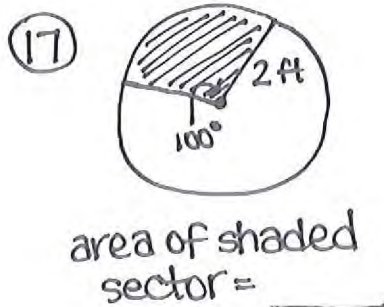 17
2 ft
100°
area of shaded
sector =